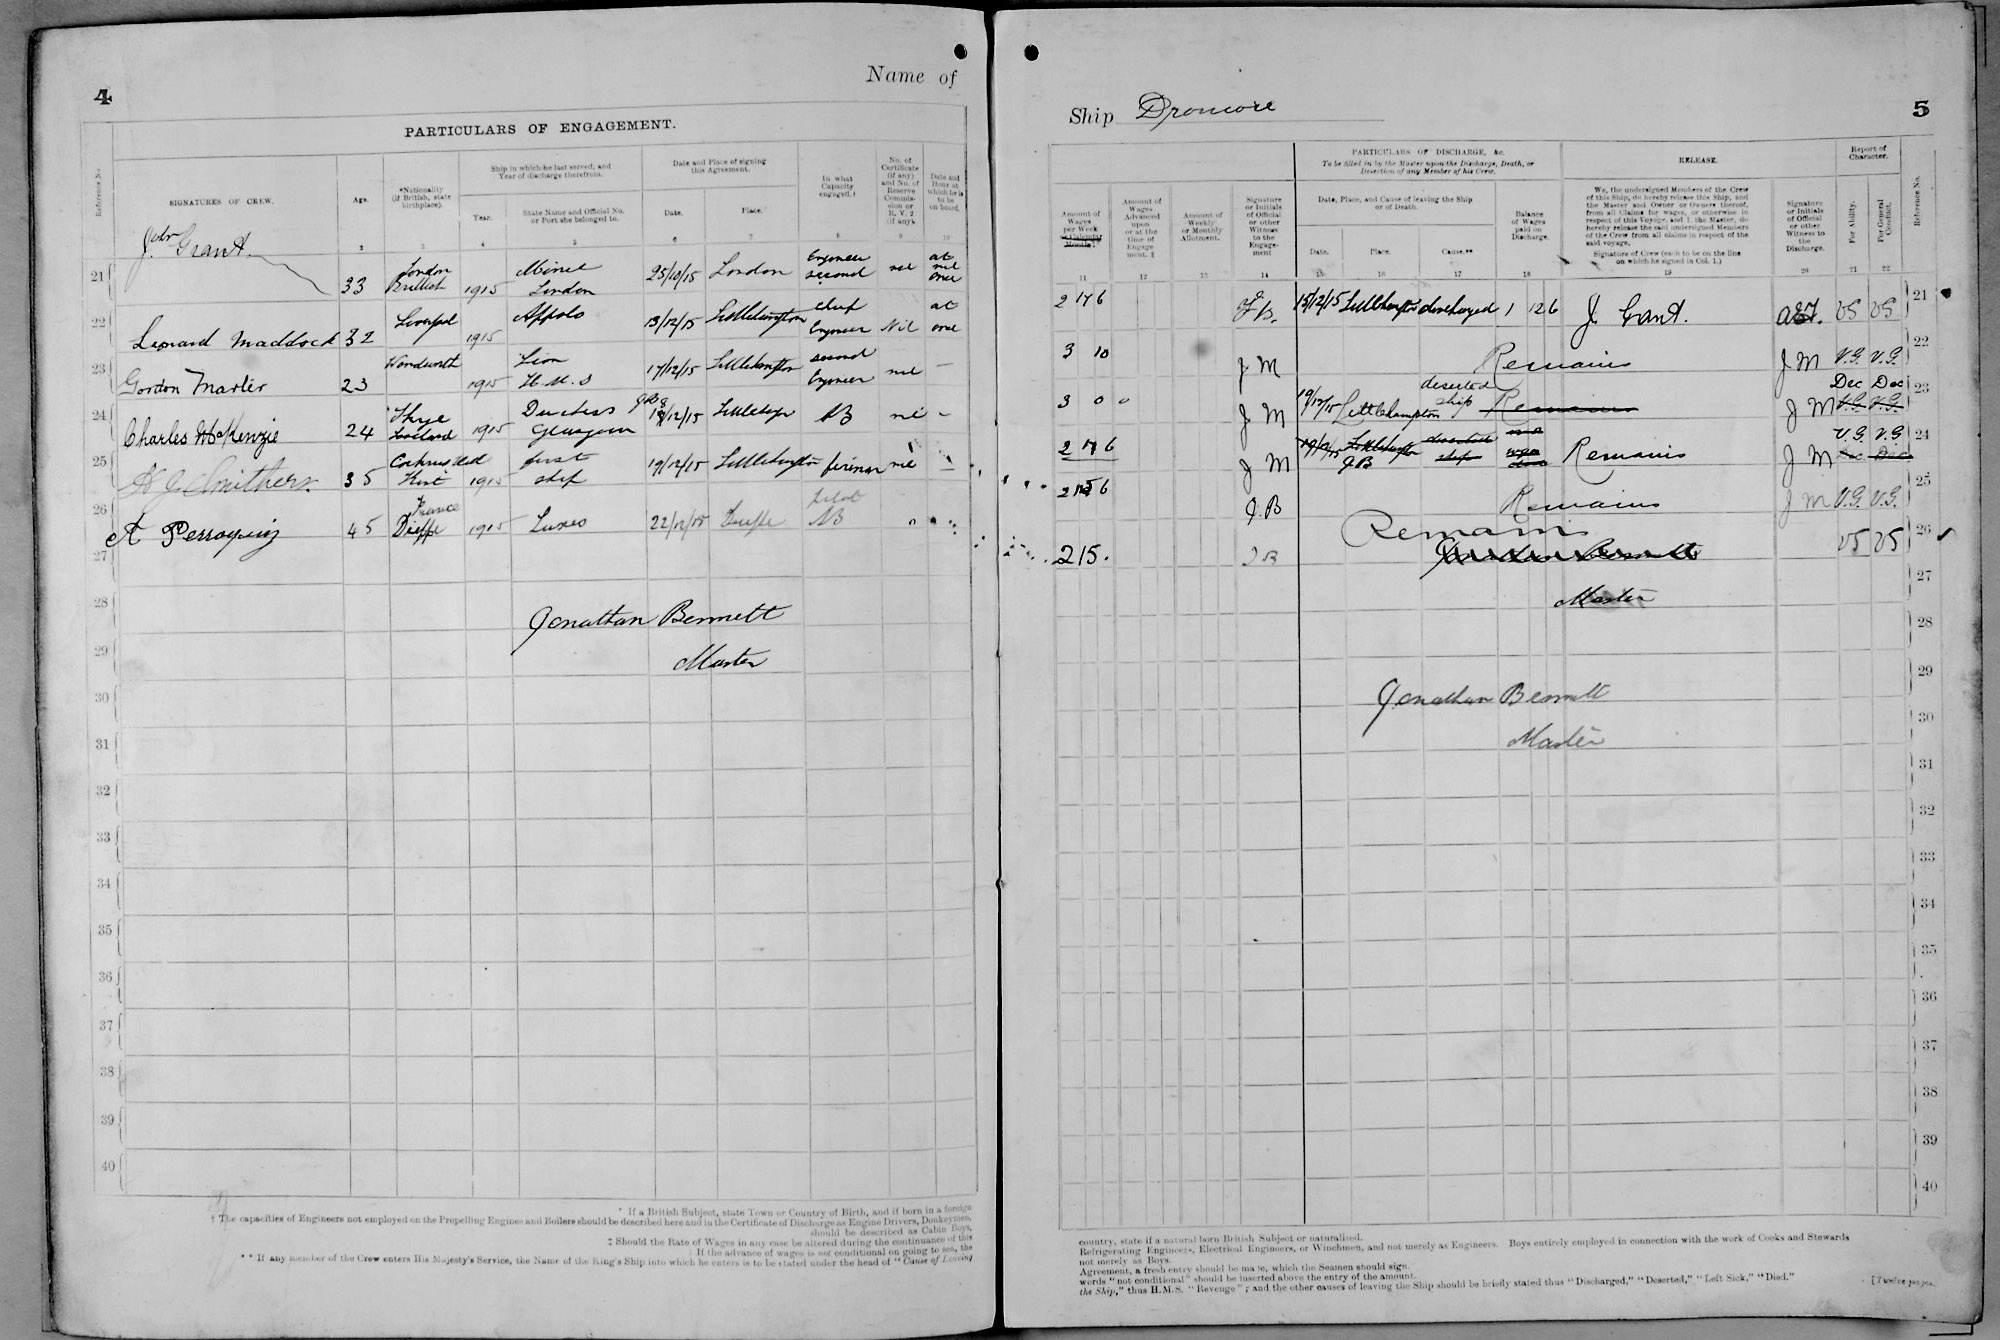 4
Name of
PARTICULARS OF ENGAGEMENT.
Reference No.
SIGNATURES OF CREW.
Age.
*Nationality (if British, state birthplace).
Ship in which he last served, and Year of discharge therefrom.
Year.
State Name and Official No. or Port she belonged to.
Date and Place of signing this Agreement.
Date.
Place.
In what Capacity engaged.†
No. of Certificate (if any) and No. of Reserve Commission or R.V. 2 (if any).
Date and Hour at which he is to be on board.
1 2 3 4 5 6 7 8 9 10
21 John Grant. 33 London British 1915 London 25/10/15 London Engineer second nil at once
22 Leonard Maddock 32 Liverpol 1915 Appolo 13/12/15 Littlehampton chief Engineer Nil at once
23 Gordon Marler 23 Wandsworth 1915 Lion H.M.S 17/12/15 Littlehampton second Engineer nil –
24 Charles McKenzie 24 Skye Scotland 1915 Duchess Glasgow /12/15 AB nil –
25 H J Smithers. 35 Kent 1915 first ship 19/12/15 Littlehampton fireman nil
26 A 45 France Dieppe 1915 22/12/15 Dieppe pilot AB "
27
28 Jonathan Bennett
29 Master
30
31
32
33
34
35
36
37
38
39
40
* If a British Subject, state Town or Country of Birth, and if born in a foreign
† The capacities of Engineers not employed on the Propelling Engines and Boilers should be described here and in the Certificate of Discharge as Engine Drivers, Donkeymen,
should be described as Cabin Boys,
‡ Should the Rate of Wages in any case be altered during the continuance of this
If the advance of wages is not conditional on going to sea, the
** If any member of the Crew enters His Majesty's Service, the Name of the King's Ship into which he enters is to be stated under the head of "Cause of Leaving
Ship Dromore
5
Amount of Wages per Week or Calendar Month.‡
Amount of Wages Advanced upon or at the time of Engagement. §
Amount of Weekly or Monthly Allotment.
Signature or Initials of Official or other Witness to the Engagement
PARTICULARS OF DISCHARGE, &c.
To be filled in by the Master upon the Discharge, Death, or Desertion of any Member of his Crew.
Date, Place, and Cause of leaving the Ship or of Death.
Date.
Place.
Cause.**
Balance of Wages paid on Discharge.
RELEASE.
We, the undersigned Members of the Crew of this Ship, do hereby release this Ship, and the Master and Owner or Owners thereof, from all Claims for wages, or otherwise in respect of this Voyage, and I, the Master, do hereby release the said undersigned Members of the Crew from all claims in respect of the said voyage.
Signature of Crew (each to be on the line on which he signed in Col. 1.)
Signature or Initials of Official or other Witness to the Discharge.
Report of Character.
For Ability.
For General Conduct.
Reference No.
11 12 13 14 15 16 17 18 19 20 21 22
2 17 6 J B. 15/12/15 Littlehampton discharged 1 12 6 J Grant. VG VG 21
3 10 J M Remains J M V.G. V.G. 22
3 0 0 J M 19/12/15 Littlehampton deserted ship Remains J M Dec Dec V.G. V.G. 23
2 17 6 J M 19/12/15 Littlehampton J.B deserted ship Remains J M V.G. V.G Dec Dec 24
2 6 J.B Remains J M V.G. V.G. 25
2 15. J B Remains VG VG 26
Jonathan Bennett
27
Master
28
29
Jonathan Bennett
30
Master
31
32
33
34
35
36
37
38
39
40
country, state if a natural born British Subject or naturalised.
Refrigerating Engineers, Electrical Engineers, or Winchmen, and not merely as Engineers. Boys entirely employed in connection with the work of Cooks and Stewards
not merely as Boys.
Agreement, a fresh entry should be made, which the Seamen should sign.
words "not conditional" should be inserted above the entry of the amount.
the Ship," thus H.M.S. "Revenge"; and the other causes of leaving the Ship should be briefly stated thus "Discharged," "Deserted," "Left Sick," "Died."
[Twelve pages.